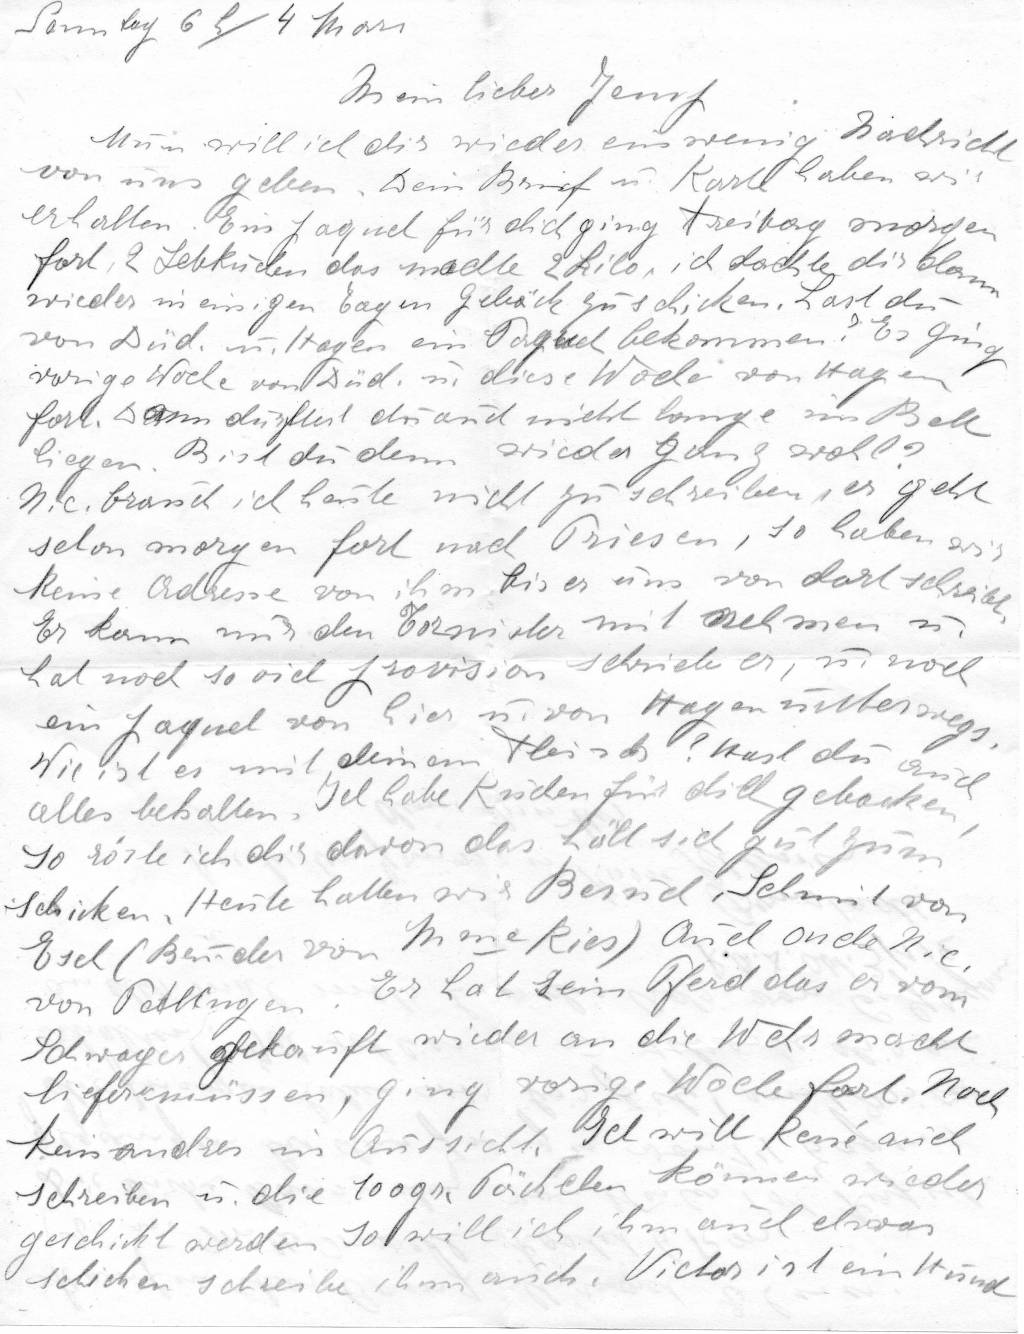 Sonntag 6 h/ 4 März
Mein lieber Jempf
Nun will ich dir wieder ein wenig Nachricht
von uns geben. Dein Brief u. Karte haben wir
erhalten. Ein Paquet für dich ging Freitag morgen
fort, 2 Lebkuchen das machte 2 Kilo, ich dachte dir dann
wieder in einigen Tagen Gebäck zu schicken. Hast du
von Düd. u. Hagen ein Paquet bekommen? Es ging
vorige Woche von Düd. u. diese Woche von Hagen
fort. Dann durftest du auch nicht lange im Bett
liegen. Bist du denn wieder ganz wohl?
N.c. brauch ich heute nicht zu schreiben, er geht
schon morgen fort nach Triesen, so haben wir
keine Adresse von ihm bis er uns von dort schreibt.
Er kann nur den Tornister mit nehmen u.
hat noch so viel Provision schrieb er, u. noch
ein Paquet von hier u. von Hagen unterwegs.
Wie ist es mit deinem Fleisch? Hast du auch
alles behalten. Ich habe Kuchen für dich gebacken,
so röste ich dir davon das hält sich gut zum
schicken. Heute hatten wir Besuch, Schmit von
Esch (Bruder von Mme Ries) Auch Onche N.c.
von Tettingen. Er hat sein Pferd das er vom
Schwager gekauft wieder an die Wehrmacht
liefern müssen, ging vorige Woche fort. Noch
kein andres in Aussicht. Ich will René auch
schreiben u. die 100gr. Päckchen können wieder
geschickt werden so will ich ihm auch etwas
schicken schreibe ihm auch. Victor ist ein Hund